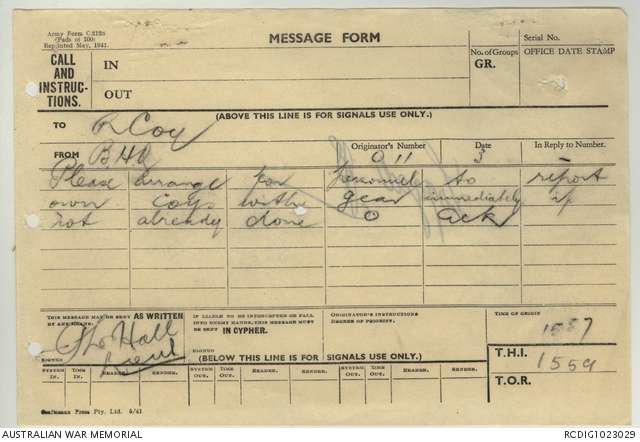 Army Form C.2128
(Pads of 100)
Reprinted May, 1941.
MESSAGE FORM
Serial No.
CALL AND INSTRUC-TIONS.
IN
OUT
No. of Groups
GR.
OFFICE DATE STAMP
(ABOVE THIS LINE IS FOR SIGNALS USE ONLY.)
TO R Coy
FROM B.HQ
Originator's Number
O 11
Date
3
In Reply to Number.
–
Please arrange for personnel to report
own Coys with gear immediately if
not already done O ack
THIS MESSAGE MAY BE SENT AS WRITTEN
BY ANY MEANS.
IF LIABLE TO BE INTERCEPTED OR FALL
INTO ENEMY HANDS, THIS MESSAGE MUST
BE SENT IN CYPHER.
ORIGINATOR'S INSTRUCTIONS
DEGREE OF PRIORITY.
TIME OF ORIGIN
1557
Hall
Lieut
SIGNED
SIGNED
(BELOW THIS LINE IS FOR SIGNALS USE ONLY.)
T.H.I. 1559
T.O.R.
SYSTEM IN. TIME IN. READER. SENDER. SYSTEM OUT. TIME OUT. READER. SENDER. SYSTEM OUT. TIME OUT. READER. SENDER.
Pty. Ltd. 6/41
AUSTRALIAN WAR MEMORIAL
RCDIG1023029